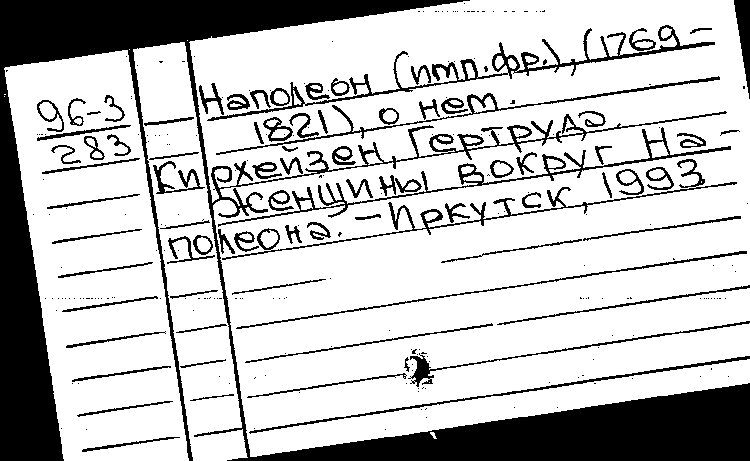 96-3
283
Наполеон (имп.фр.), (1769-
1821), о нем.
Кирхейзен, Гертруда.
Женщины вокруг На-
полеона. - Иркутск, 1993